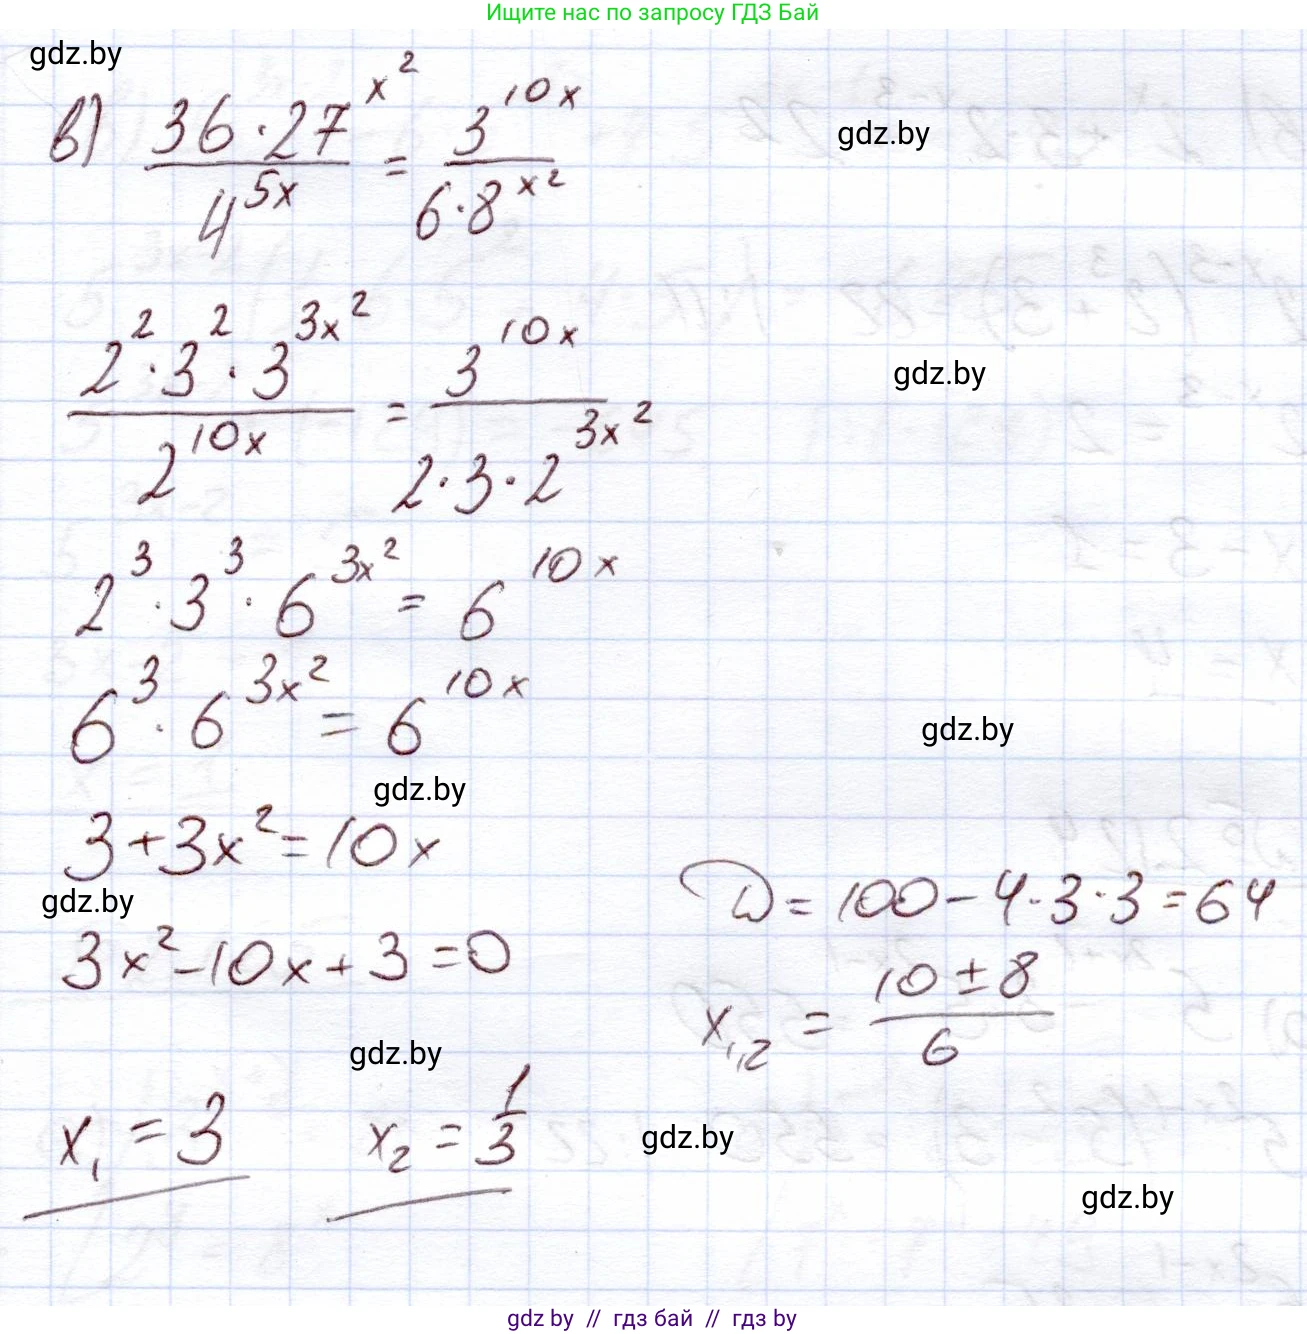 Ищите нас по запросу ГДЗ Бай
gdz.by
в) (36·27^(x^2))/(4^(5x)) = (3^(10x))/(6·8^(x^2))
gdz.by
(2^2·3^2·3^(3x^2))/(2^(10x)) = (3^(10x))/(2·3·2^(3x^2))
gdz.by
2^3·3^3·6^(3x^2) = 6^(10x)
6^3·6^(3x^2) = 6^(10x)
gdz.by
gdz.by
3+3x^2=10x
gdz.by
D=100-4·3·3=64
3x^2-10x+3=0
x_(1,2) = (10±8)/6
gdz.by
x_1=3 x_2=1/3
gdz.by
gdz.by
gdz by // гдз бай // гдз by